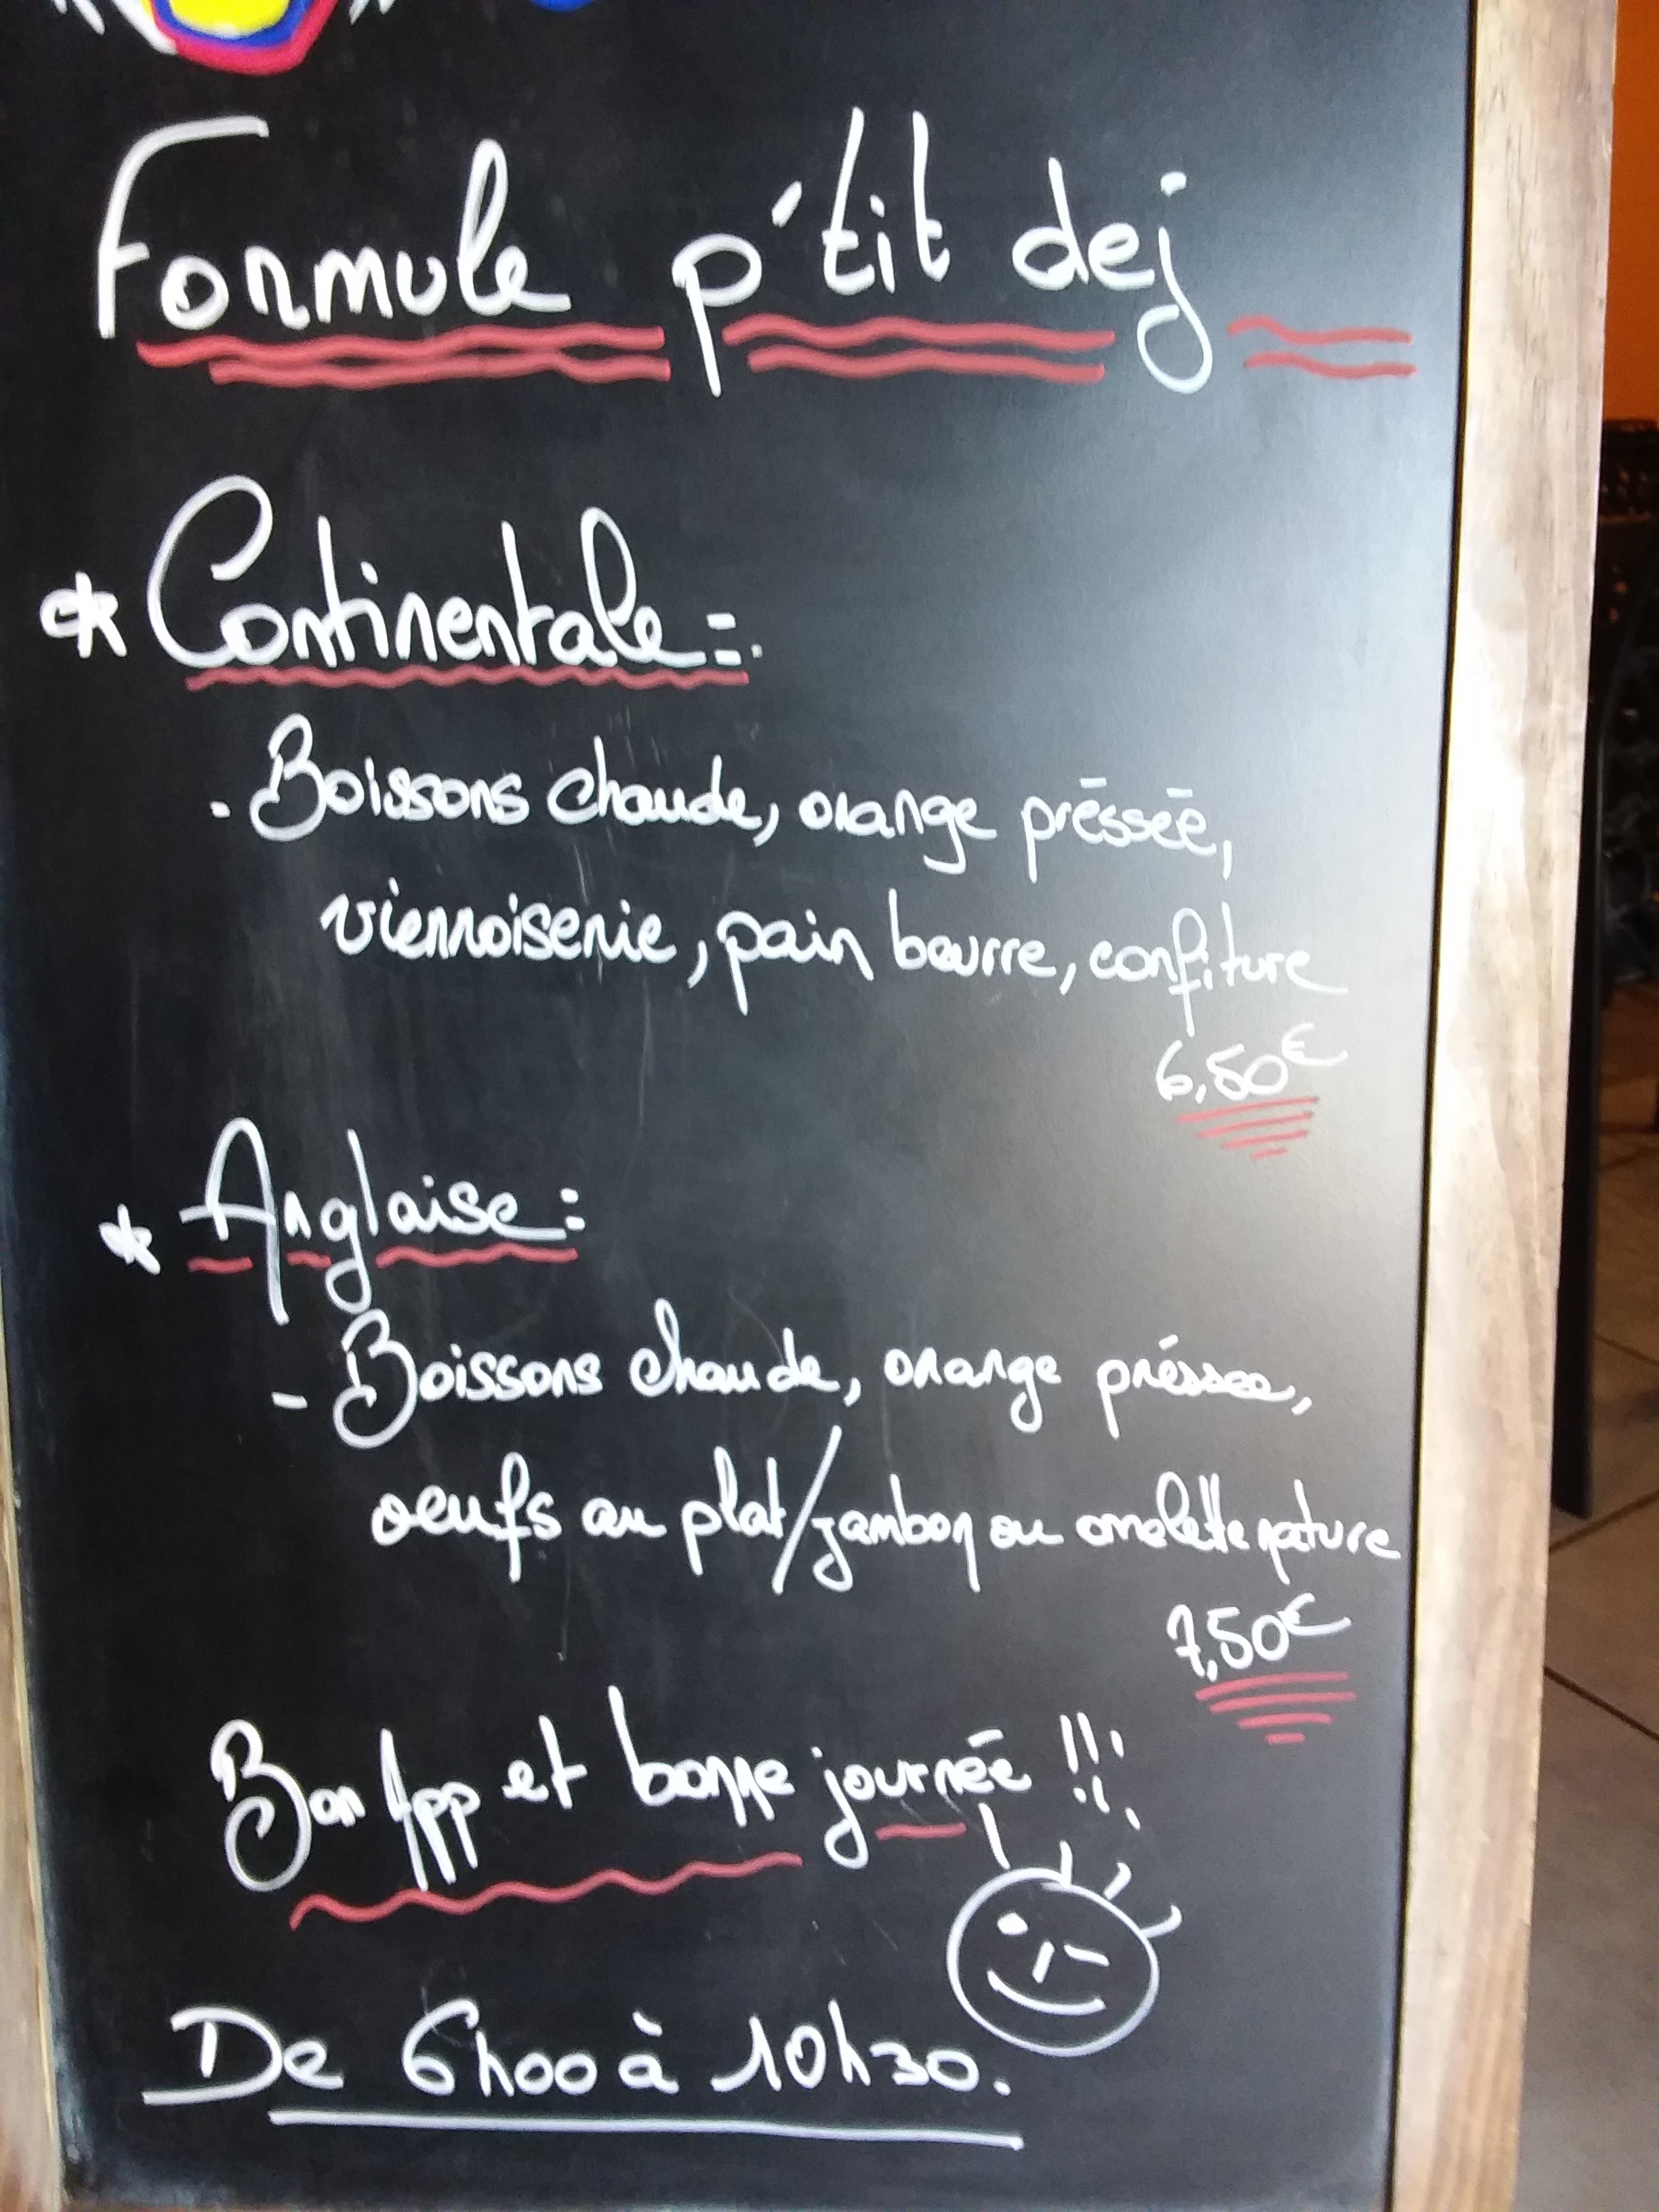 Formule p'tit dej
* Continentale :
. Boissons chaude, orange présseé,
viennoiserie, pain beurre, confiture
6,50€
* Anglaise :
- Boissons chaude, orange préssee,
oeufs au plat/jambon ou omelette nature
7,50€
Bon App et bonne journée !!!
De 6h00 à 10h30.